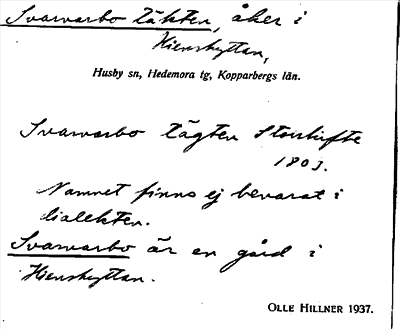 Svarvarbo täkten, åker i
Kienshyttan,
Husby sn, Hedemora tg, Kopparbergs län.
Svarvarbo tägten Storskifte
1803.
Namnet finns ej bevarat i
dialekten.
Svarvarbo är en gård i
Kienshyttan.
OLLE HILLNER 1937.